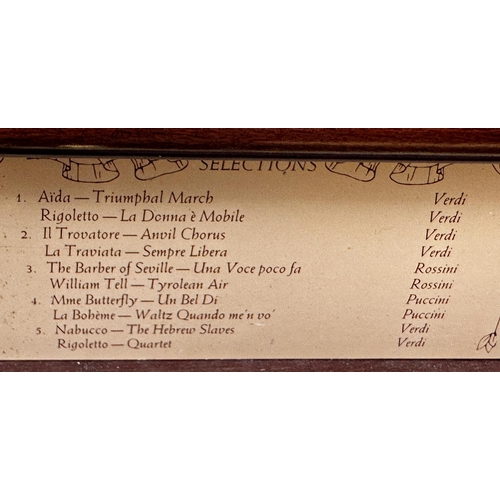 SELECTIONS
1. Aïda — Triumphal March Verdi
Rigoletto — La Donna è Mobile Verdi
2. Il Trovatore — Anvil Chorus Verdi
La Traviata — Sempre Libera Verdi
3. The Barber of Seville — Una Voce poco fa Rossini
William Tell — Tyrolean Air Rossini
4. Mme Butterfly — Un Bel Di Puccini
La Bohème — Waltz Quando me'n vo' Puccini
5. Nabucco — The Hebrew Slaves Verdi
Rigoletto — Quartet Verdi